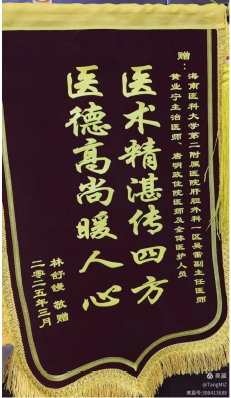 赠：海南医科大学第二附属医院肝胆外科一区吴雷副主任医师
黄业宁主治医师、唐明政住院医师及全体医护人员
医术精湛传四方
医德高尚暖人心
林舒慢 敬赠
二零二五年三月
美篇
@TangMZ
美篇号:398413686